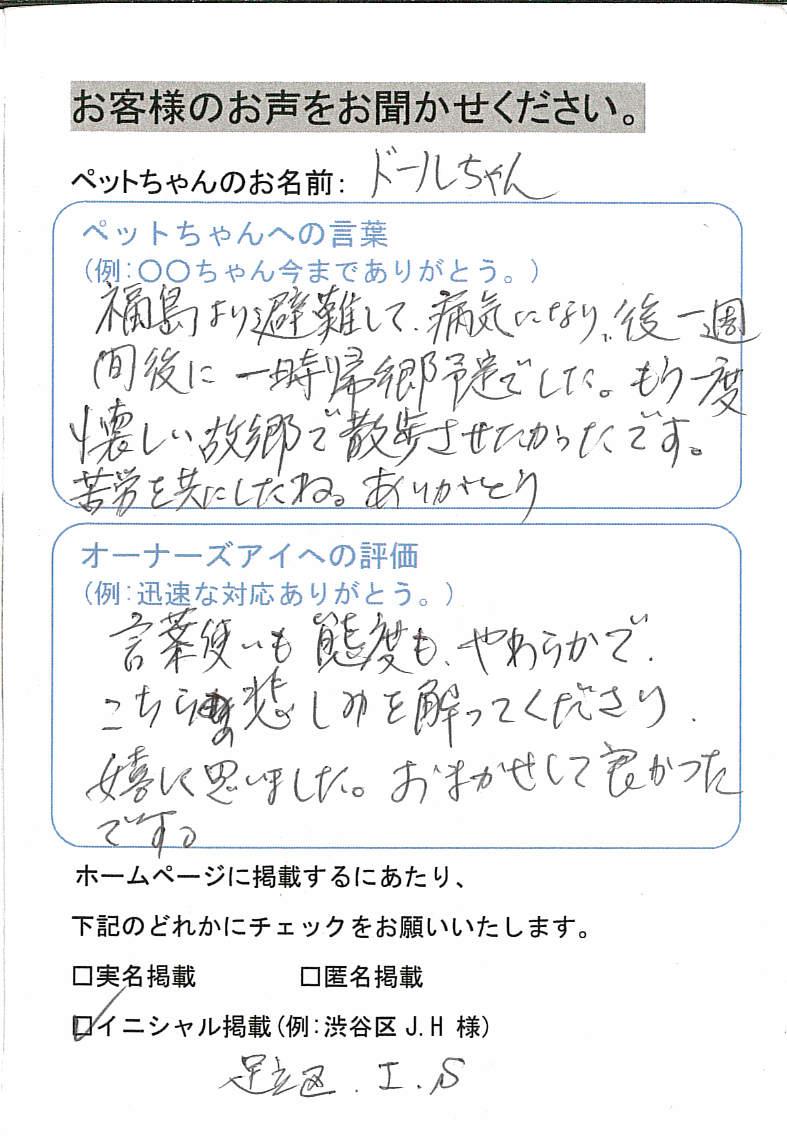 お客様のお声をお聞かせください。
ペットちゃんのお名前: ドールちゃん
ペットちゃんへの言葉
(例:〇〇ちゃん今までありがとう。)
福島より避難して、病気になり、後一週
間後に一時帰郷予定でした。もう一度
懐しい故郷で散歩させたかったです。
苦労を共にしたね。ありがとう
オーナーズアイへの評価
(例:迅速な対応ありがとう。)
言葉使いも態度も、やわらかで、
こちらの悲しみを解ってくださり、
嬉しく思いました。おまかせして良かった
です。
ホームページに掲載するにあたり、
下記のどれかにチェックをお願いいたします。
□実名掲載 □匿名掲載
☑イニシャル掲載(例:渋谷区 J.H 様)
足立区. I. S